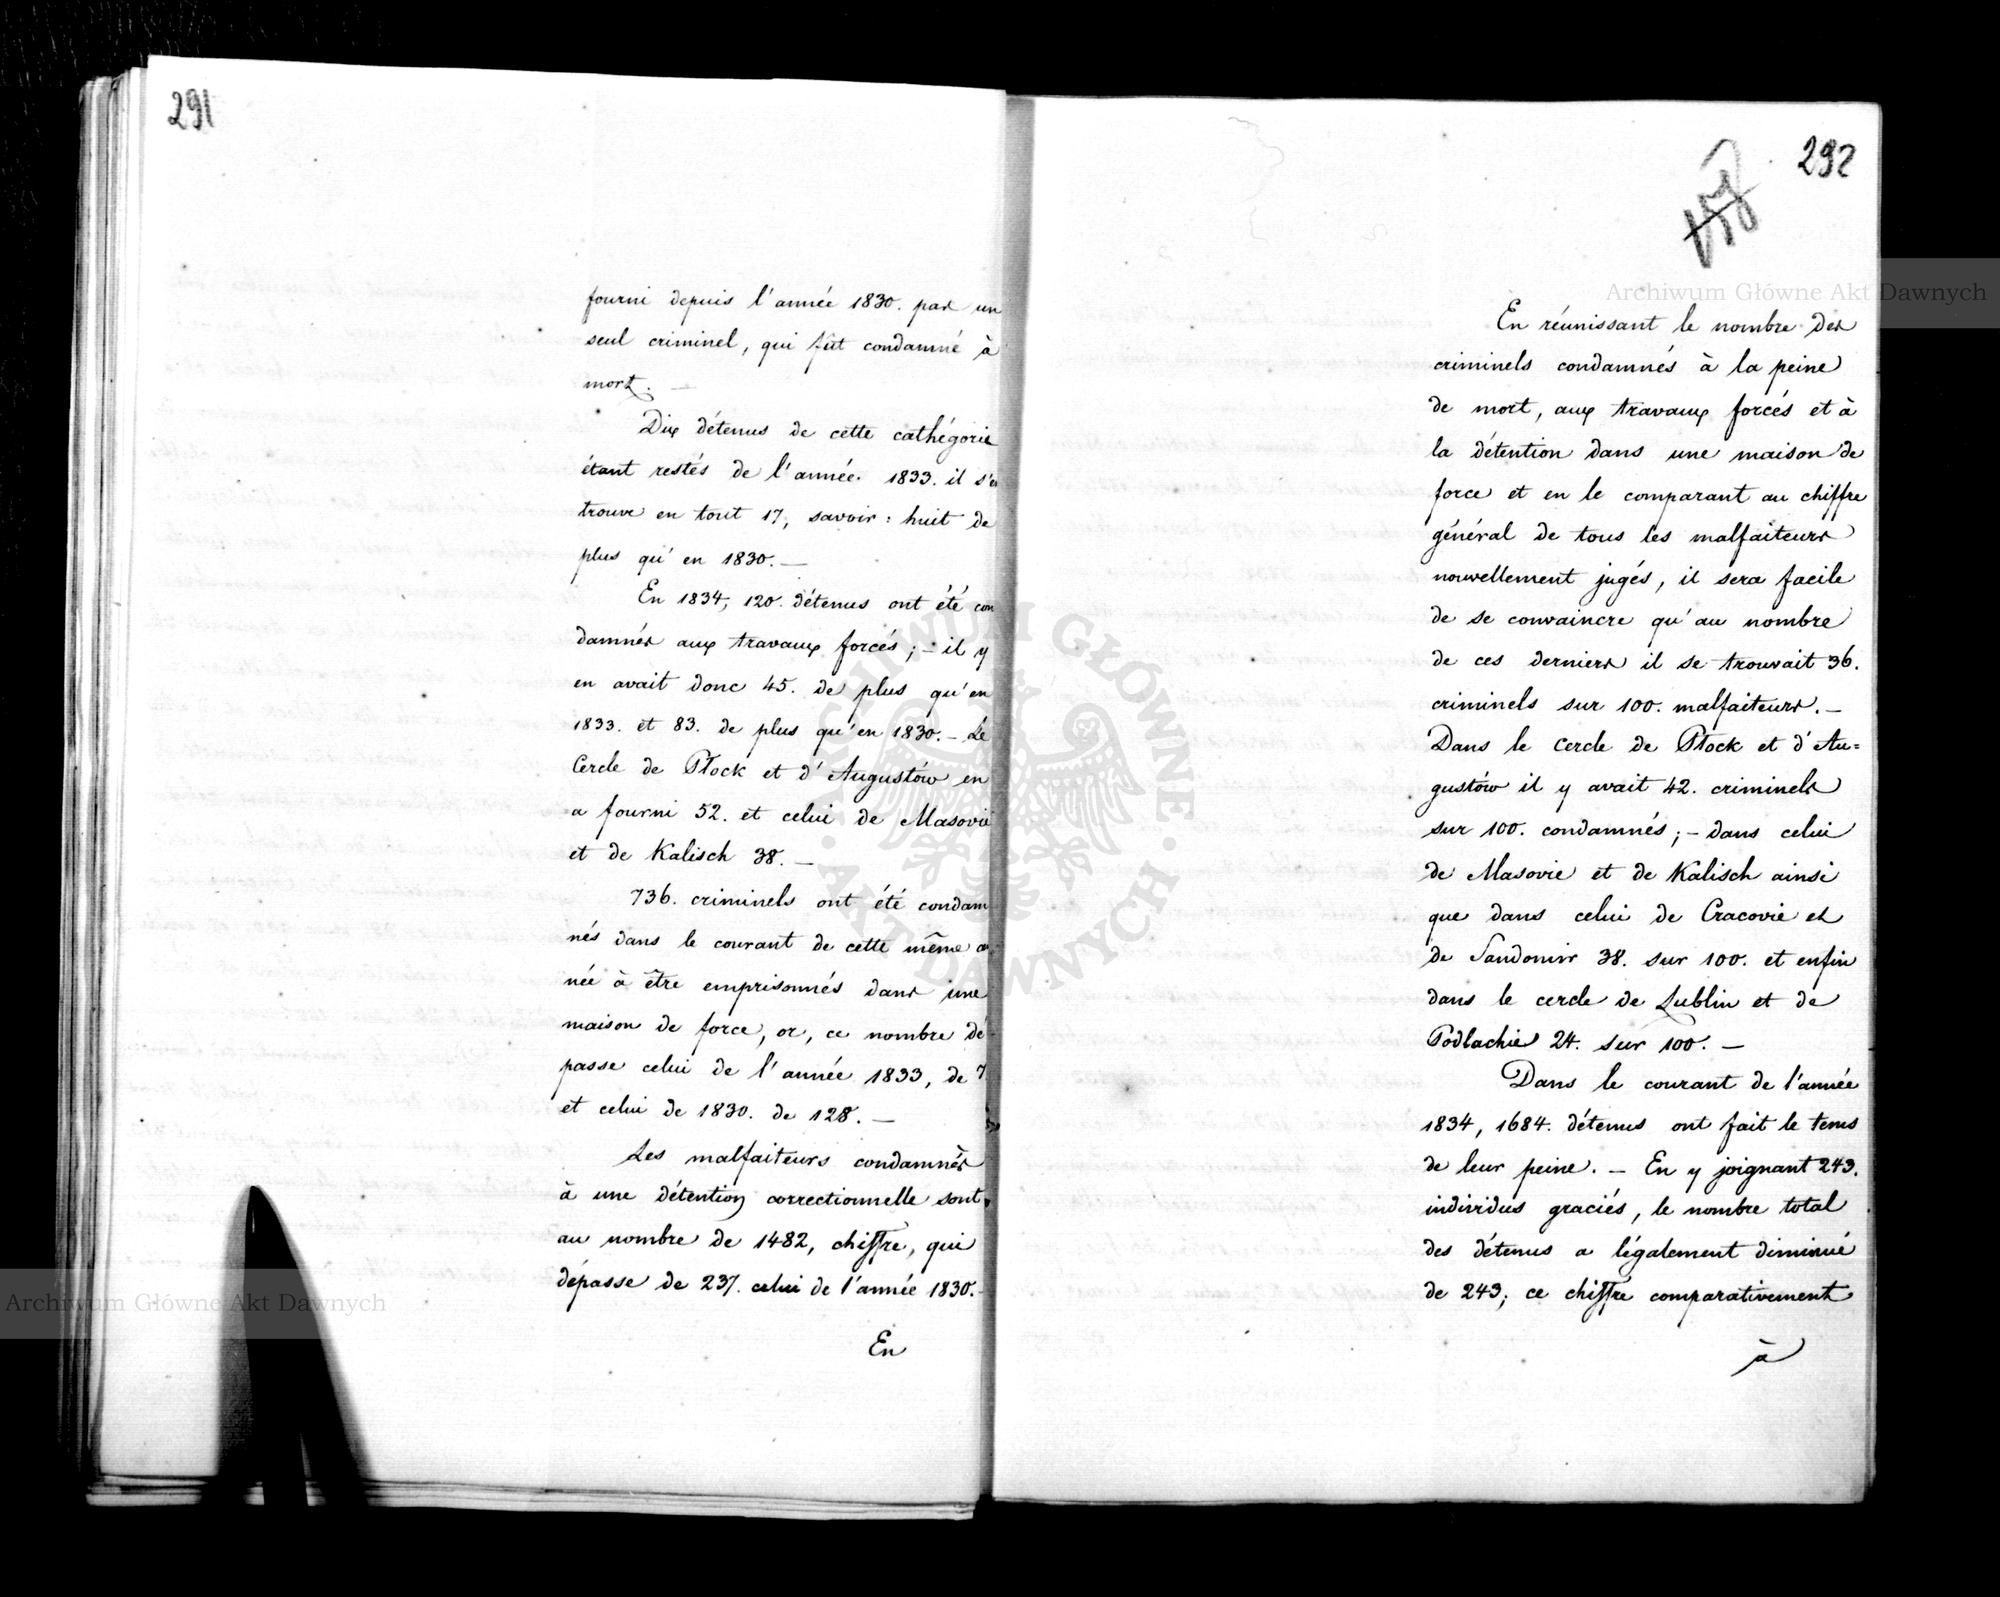 291
fourni depuis l'année 1830. par un
seul criminel, qui fût condamné à
mort. —
Dix détenus de cette cathégorie
étant restés de l'année 1833. il s'en
trouve en tout 17, savoir: huit de
plus qu'en 1830. —
En 1834, 120. détenus ont été con
damnés aux travaux forcés; – il y
en avait donc 45. de plus qu'en
1833. et 83. de plus qu'en 1830. – Le
Cercle de Płock et d'Augustów en
a fourni 52. et celui de Masovie
et de Kalisch 38. —
736. criminels ont été condam
nés dans le courant de cette même an
née à être emprisonnés dans une
maison de force, or, ce nombre dé
passe celui de l'année 1833, de 7
et celui de 1830. de 128. —
Les malfaiteurs condamnés
à une détention correctionnelle sont
au nombre de 1482, chiffre, qui
dépasse de 237. celui de l'année 1830. –
En
292
En réunissant le nombre des
criminels condamnés à la peine
de mort, aux travaux forcés et à
la détention dans une maison de
force et en le comparant au chiffre
général de tous les malfaiteurs
nouvellement jugés, il sera facile
de se convaincre qu'au nombre
de ces derniers il se trouvait 36.
criminels sur 100. malfaiteurs. –
Dans le cercle de Płock et d'Au=
gustów il y avait 42. criminels
sur 100. condamnés; – dans celui
de Masovie et de Kalisch ainsi
que dans celui de Cracovie et
de Sandomir 38. sur 100. et enfin
dans le cercle de Lublin et de
Podlachie 24. sur 100. —
Dans le courant de l'année
1834, 1684. détenus ont fait le tems
de leur peine. – En y joignant 243.
individus graciés, le nombre total
des détenus a légalement diminué
de 243; ce chiffre comparativement
à
Archiwum Główne Akt Dawnych
Archiwum Główne Akt Dawnych
ARCHIWUM GŁÓWNE · AKT DAWNYCH ·